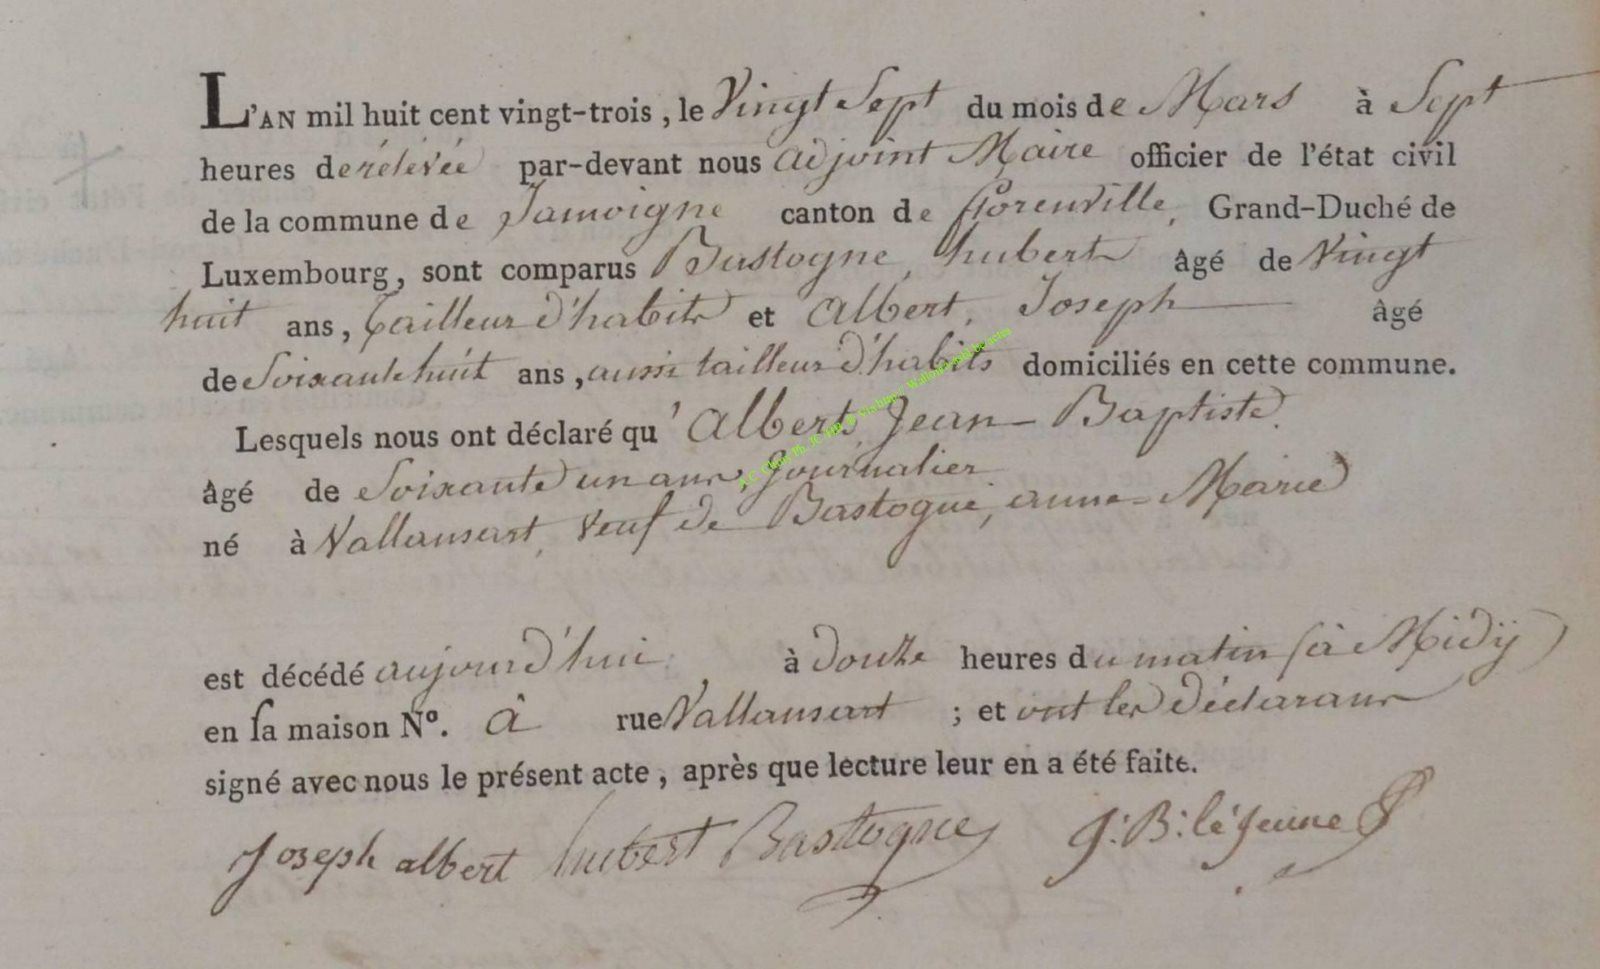 L'AN mil huit cent vingt-trois, le Vingt Sept du mois de Mars à Sept
heures de rélévée par-devant nous adjoint Maire officier de l'état civil
de la commune de Jamoigne canton de florenville, Grand-Duché de
Luxembourg, sont comparus Bastogne, hubert âgé de Vingt
huit ans, tailleur d'habits et Albert, Joseph âgé
de Soixante huit ans, aussi tailleur d'habits domiciliés en cette commune.
Lesquels nous ont déclaré qu'Albert, Jean-Baptiste.
âgé de Soixante un ans, Journalier
né à Vallansart, Veuf de Bastogne, anne-Marie
est décédé aujourd'hui à douze heures du matin (à Midÿ)
en sa maison Nº. à rue Vallansart ; et ont les déclarans
signé avec nous le présent acte, après que lecture leur en a été faite.
Joseph albert hubert Bastogne J: B: léjeune